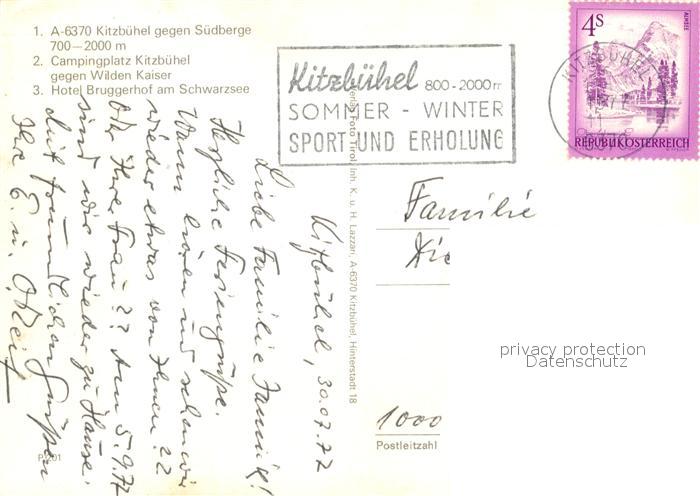 1. A-6370 Kitzbühel gegen Südberge
700—2000 m
2. Campingplatz Kitzbühel
gegen Wilden Kaiser
3. Hotel Bruggerhof am Schwarzsee
Kitzbühel 800-2000m
SOMMER - WINTER
SPORT UND ERHOLUNG
4S
ALMSEE
REPUBLIK ÖSTERREICH
KITZBÜHEL
Kitzbühel, 30.07.77
Liebe Familie
Herzliche Feriengrüße.
Wann hören und sehen wir
wieder etwas von Ihnen ??
Oder Ihrer Frau ?? Am 5.9.77
sind wir wieder zu Hause!
Mit freundlichen Grüßen
Ihre E. u. O.
Verlag Foto Tirol, Inh. K. u. H. Lazzari, A-6370 Kitzbühel, Hinterstadt 18
Familie
Die
1000
Postleitzahl
privacy protection
Datenschutz